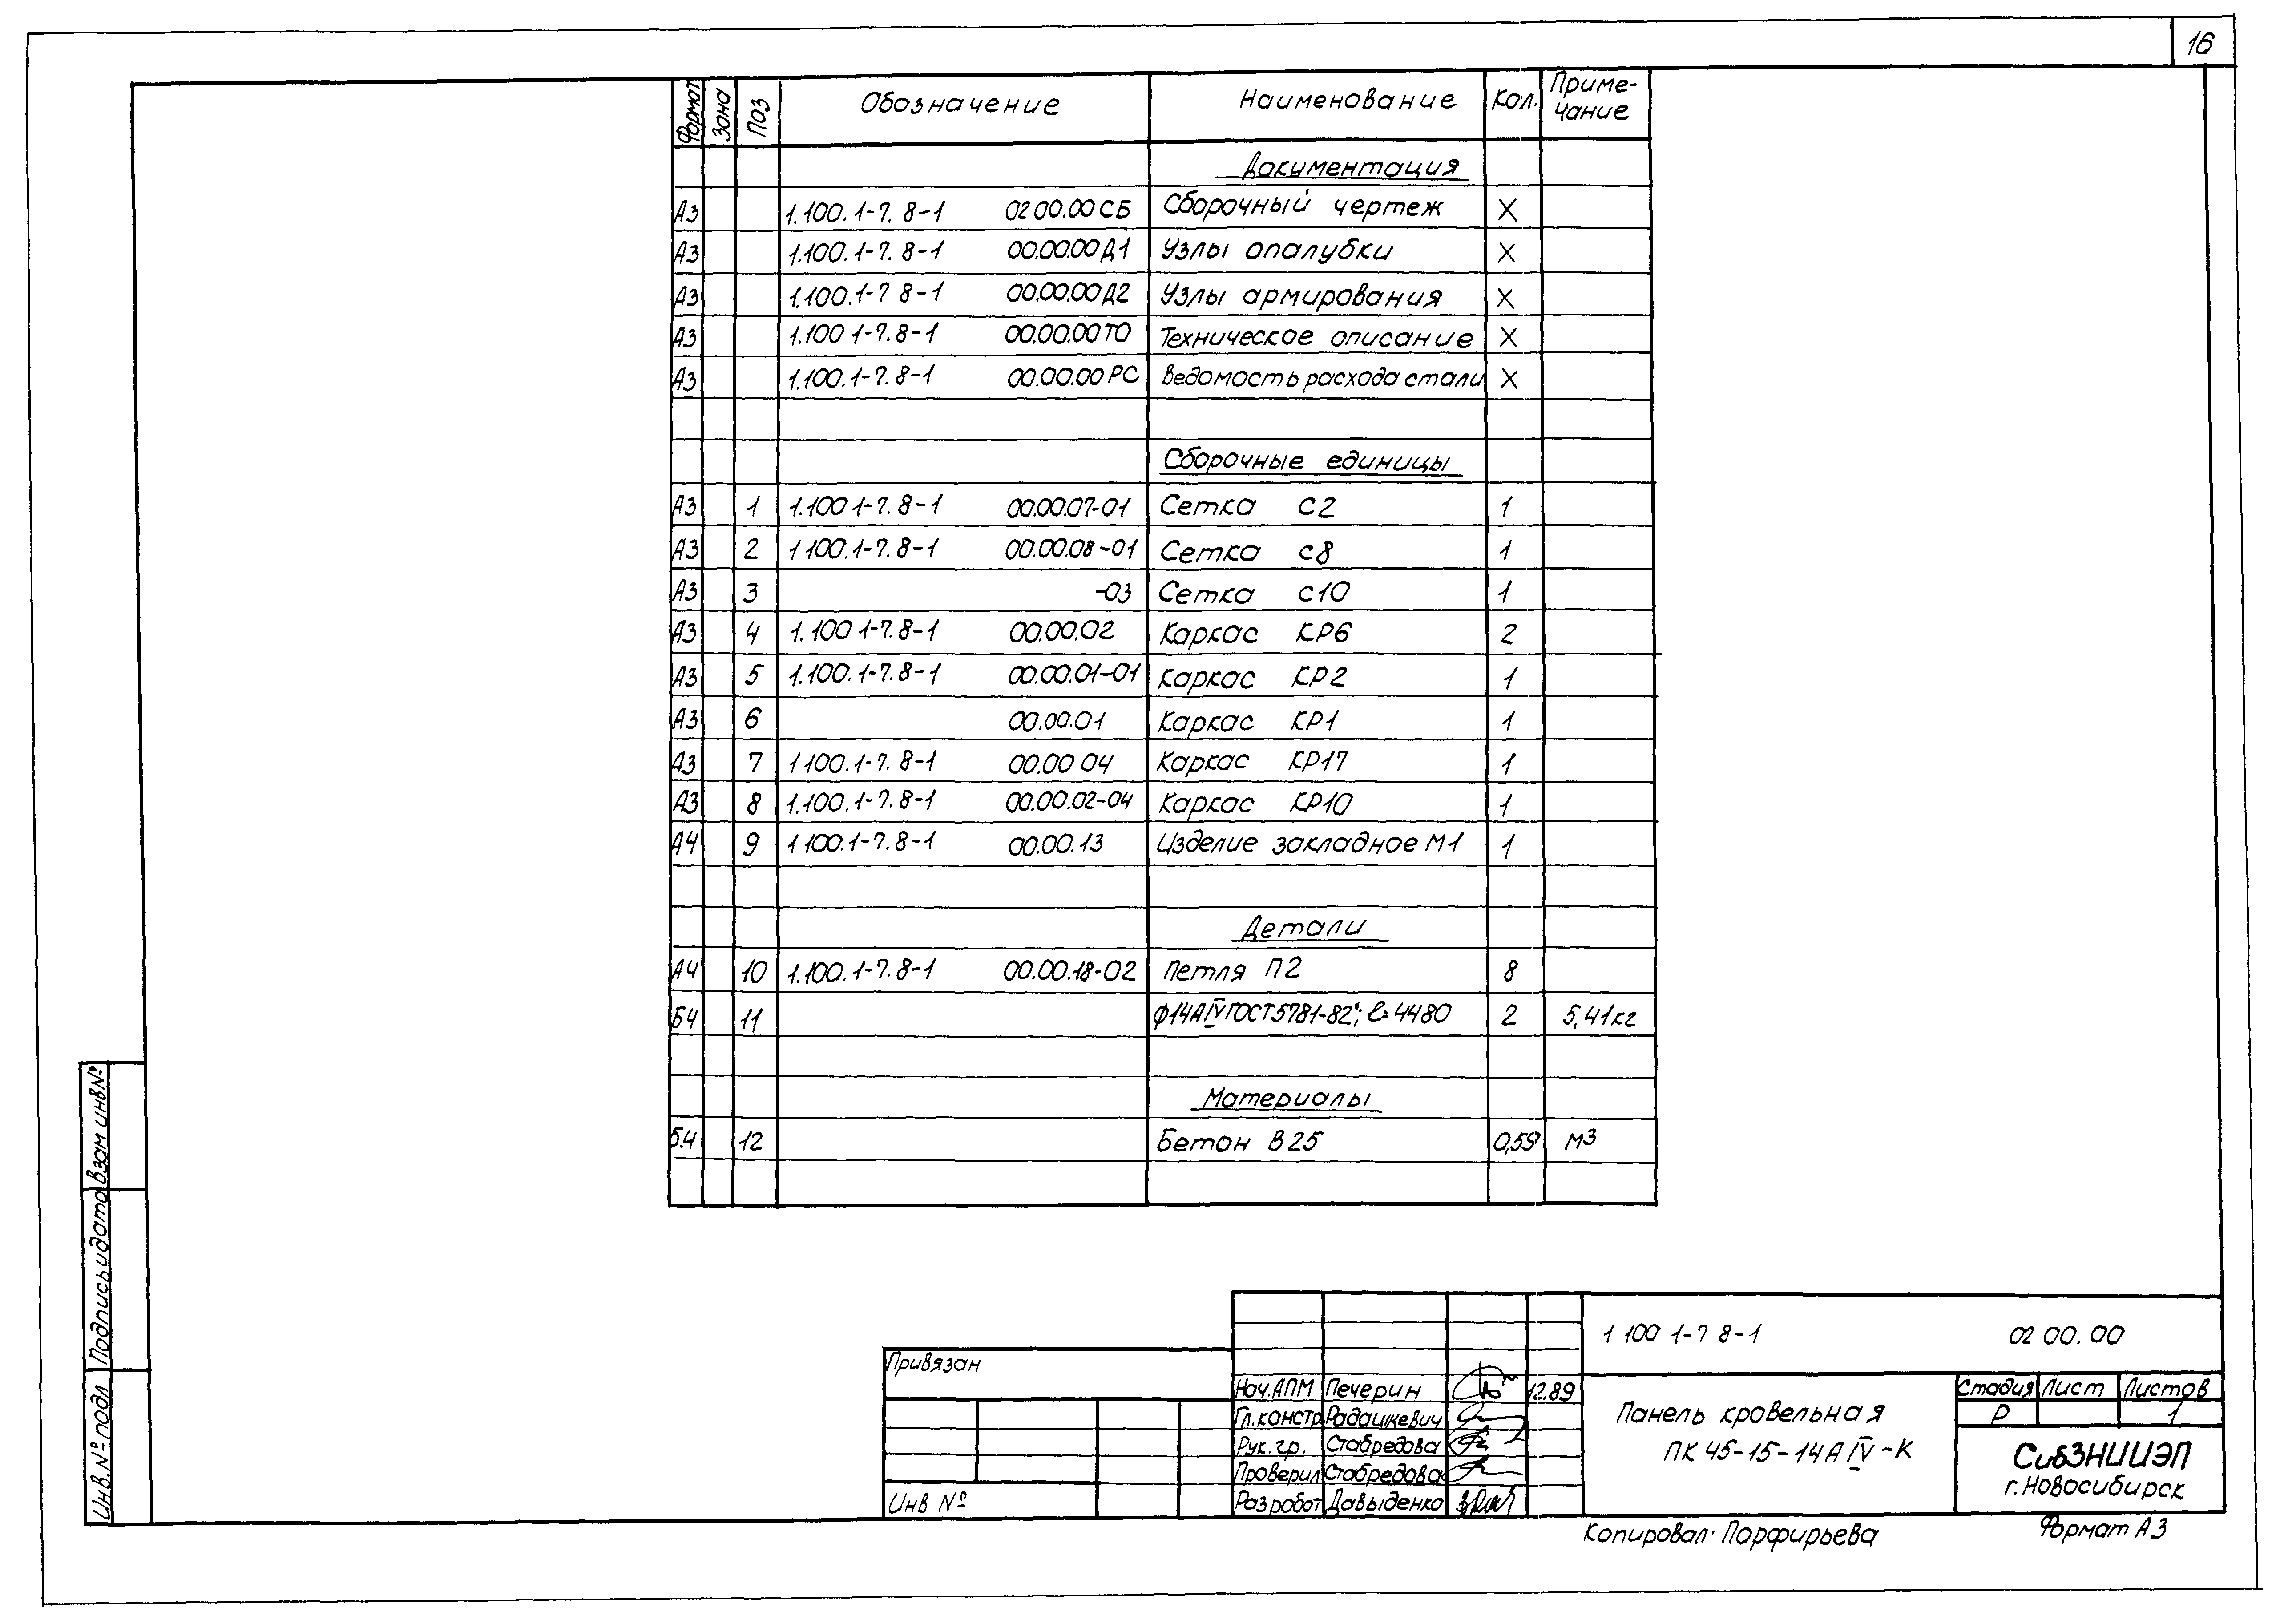 16
Формат Зона Поз Обозначение Наименование Кол. Приме-
чание
Документация
А3 1.100.1-7.8-1 02 00.00 СБ Сборочный чертеж X
А3 1.100.1-7.8-1 00.00.00 Д1 Узлы опалубки X
А3 1.100.1-7 8-1 00.00.00 Д2 Узлы армирования X
А3 1.100 1-7.8-1 00.00.00 ТО Техническое описание X
А3 1.100.1-7.8-1 00.00.00 РС Ведомость расхода стали X
Сборочные единицы
А3 1 1.100 1-7.8-1 00.00.07-01 Сетка С2 1
А3 2 1 100.1-7.8-1 00.00.08-01 Сетка С8 1
А3 3 -03 Сетка С10 1
А3 4 1.100 1-7.8-1 00.00.02 Каркас КР6 2
А3 5 1.100.1-7.8-1 00.00.01-01 Каркас КР2 1
А3 6 00.00.01 Каркас КР1 1
А3 7 1 100.1-7.8-1 00.00 04 Каркас КР17 1
А3 8 1.100.1-7.8-1 00.00.02-04 Каркас КР10 1
А4 9 1 100.1-7.8-1 00.00.13 Изделие закладное М1 1
Детали
А4 10 1.100.1-7.8-1 00.00.18-02 Петля П2 8
Б4 11 Ф14АIV ГОСТ 5781-82*; ℓ=4480 2 5,41кг
Материалы
Б.4 12 Бетон В25 0,59 м3
Инв.№ подл Подпись и дата Взам инв№
Привязан
Инв №
Нач.АПМ Печерин 12.89
Гл.констр. Радашкевич
Рук.гр. Стабредова
Проверил Стабредова
Разработ Давыденко
1 100 1-7 8-1 02 00.00
Панель кровельная
ПК 45-15-14А IV-К
Стадия Лист Листов
Р 1
СибЗНИИЭП
г.Новосибирск
Копировал: Парфирьева Формат А3